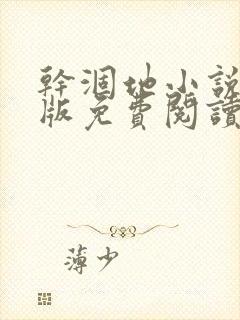 幹涸地小說
版免費閱讀
薄少